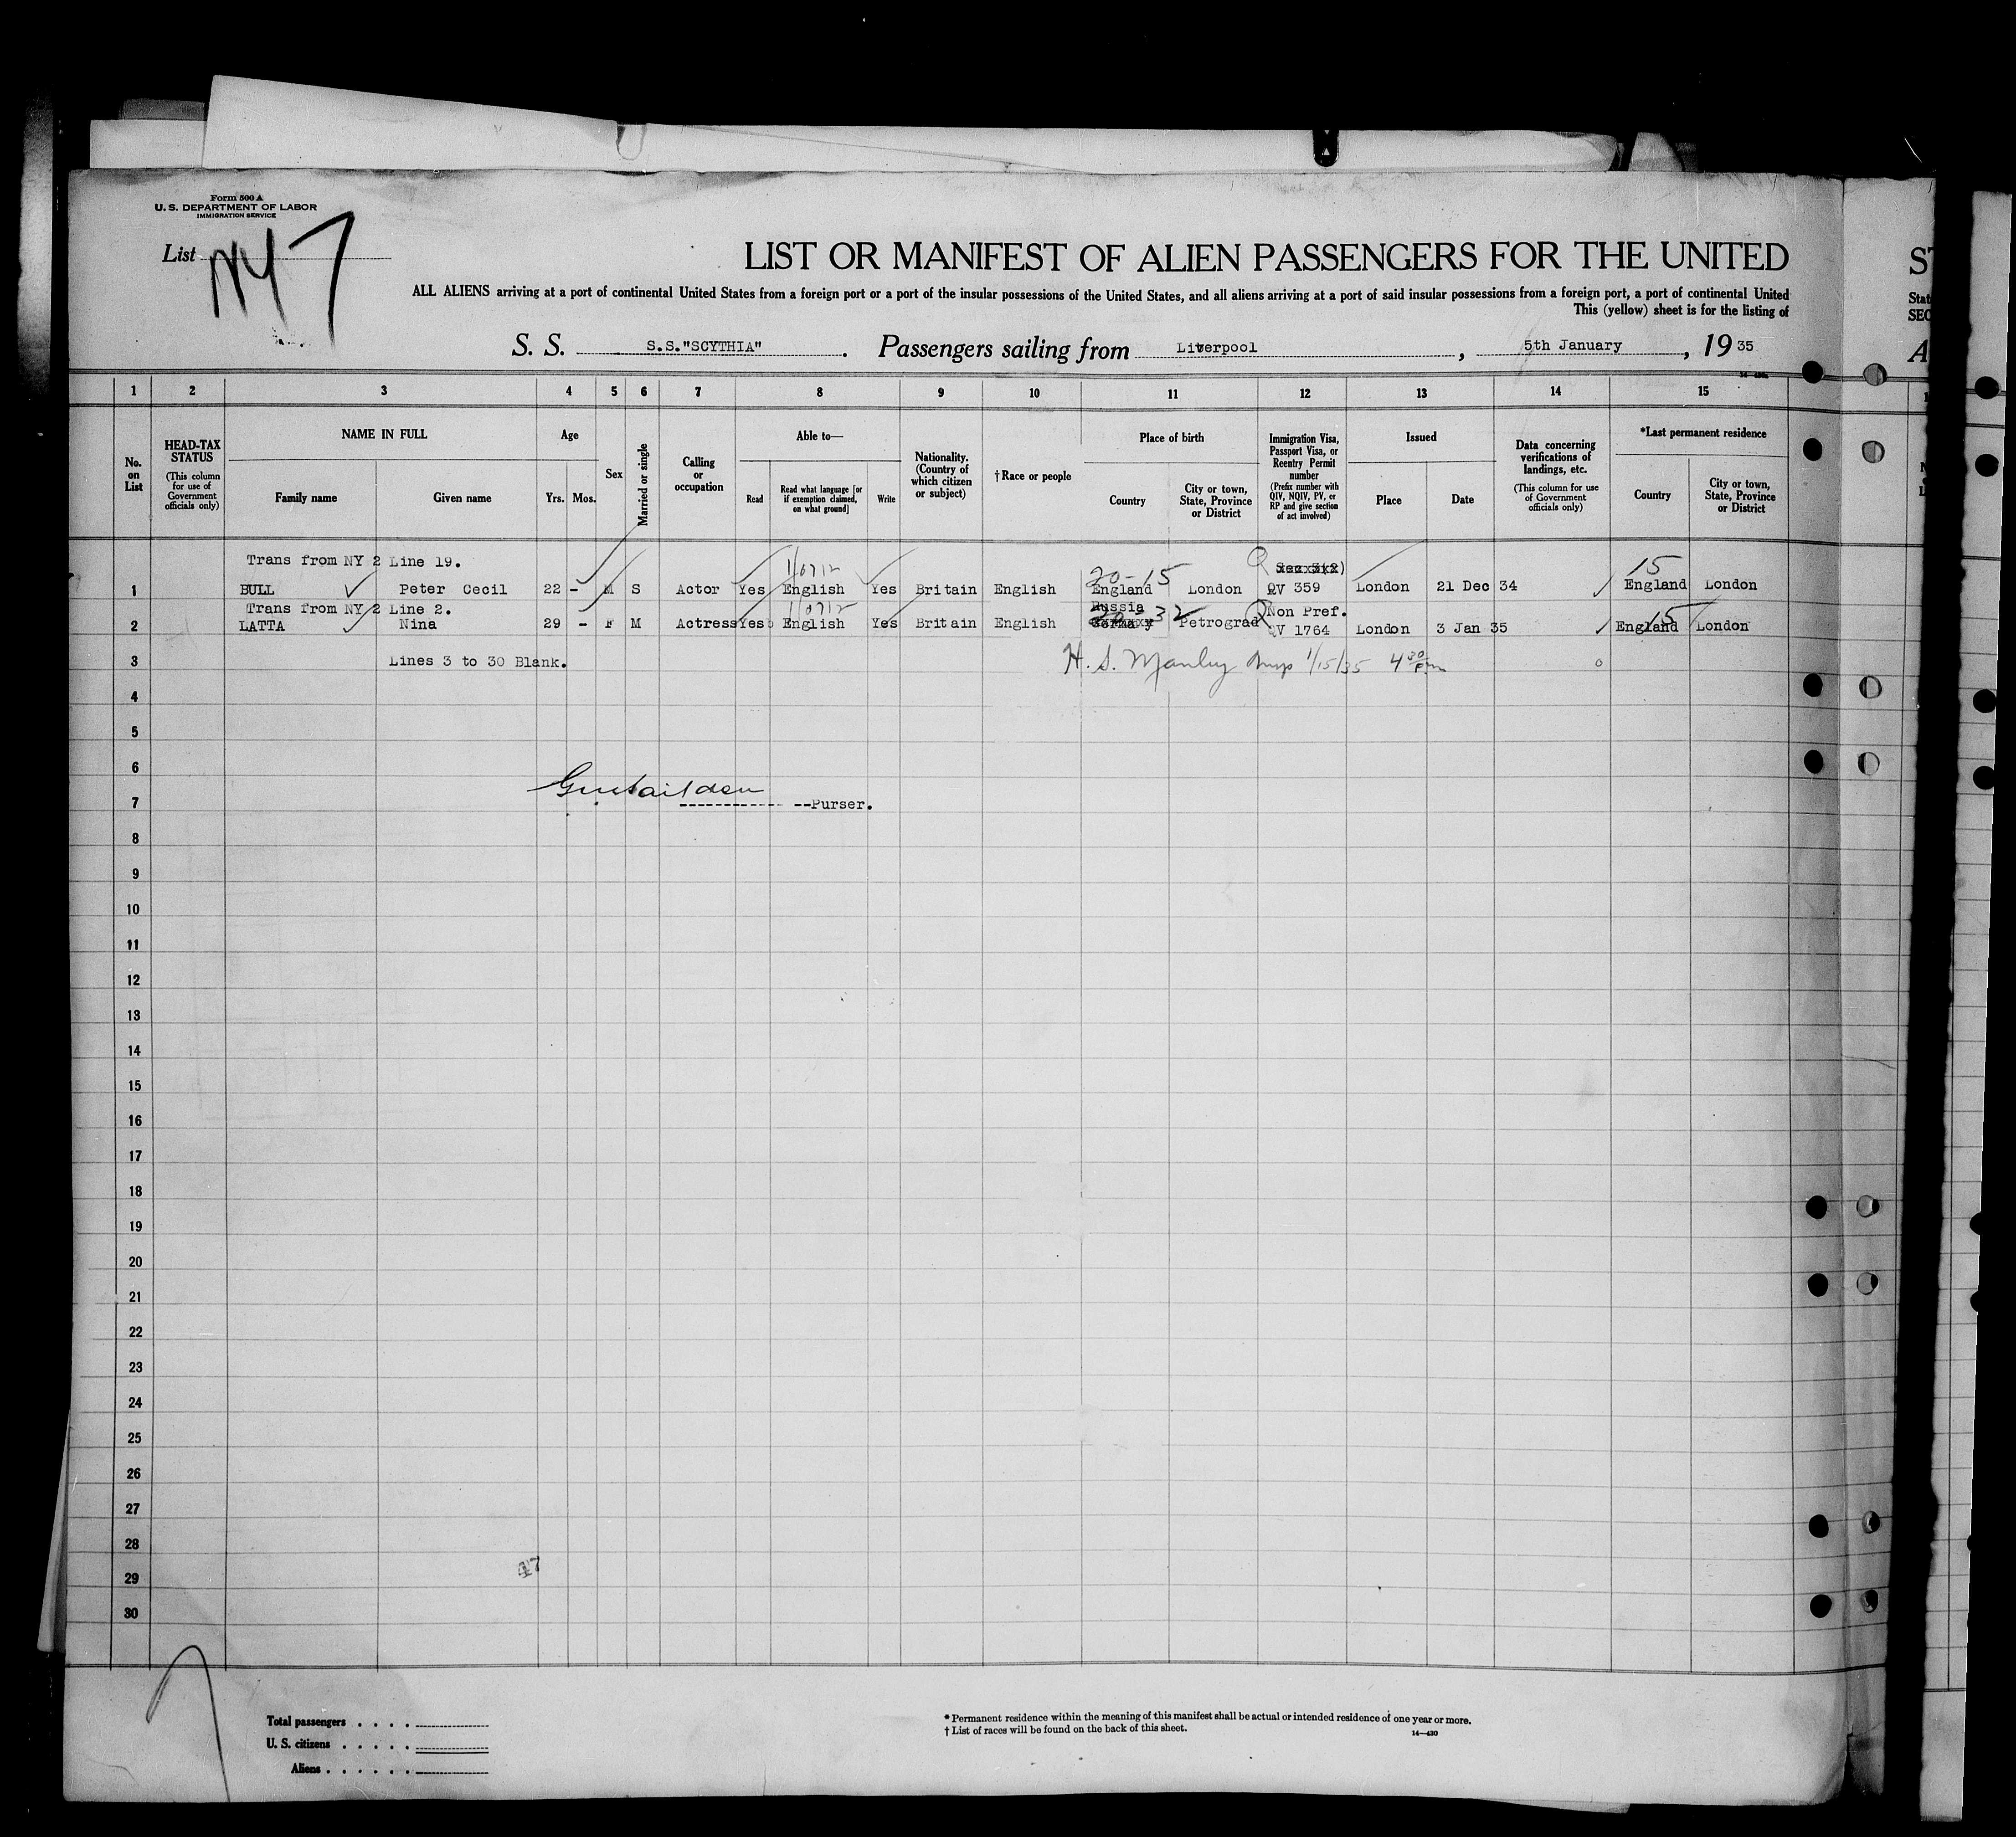 Form 500 A
U. S. DEPARTMENT OF LABOR
IMMIGRATION SERVICE
List NY 7
LIST OR MANIFEST OF ALIEN PASSENGERS FOR THE UNITED
ALL ALIENS arriving at a port of continental United States from a foreign port or a port of the insular possessions of the United States, and all aliens arriving at a port of said insular possessions from a foreign port, a port of continental United
This (yellow) sheet is for the listing of
S. S. S.S."SCYTHIA" . Passengers sailing from Liverpool , 5th January , 19 35
1 2 3 4 5 6 7 8 9 10 11 12 13 14 15
No. on List
HEAD-TAX STATUS
(This column for use of Government officials only)
NAME IN FULL
Family name
Given name
Age
Yrs. Mos.
Sex
Married or single
Calling or occupation
Able to—
Read
Read what language [or if exemption claimed, on what ground]
Write
Nationality. (Country of which citizen or subject)
† Race or people
Place of birth
Country
City or town, State, Province or District
Immigration Visa, Passport Visa, or Reentry Permit number
(Prefix number with QIV, NQIV, PV, or RP and give section of act involved)
Issued
Place
Date
Data concerning verifications of landings, etc.
(This column for use of Government officials only)
*Last permanent residence
Country
City or town, State, Province or District
Trans from NY 2 Line 19.
20-15 15
1 BULL Peter Cecil 22 - M S Actor Yes English Yes Britain English England London QV 359 London 21 Dec 34 England London
Trans from NY 2 Line 2. Russia Non Pref.
32 15
2 LATTA Nina 29 - F M Actress Yes English Yes Britain English Petrograd QV 1764 London 3 Jan 35 England London
3 Lines 3 to 30 Blank. H. S. Manley Insp 1/15/35 4 30 Pm
4
5
6
7 --Purser.
8
9
10
11
12
13
14
15
16
17
18
19
20
21
22
23
24
25
26
27
28
29
30
47
Total passengers . . . .
U. S. citizens . . . . .
Aliens . . . . . .
* Permanent residence within the meaning of this manifest shall be actual or intended residence of one year or more.
† List of races will be found on the back of this sheet.
14—430